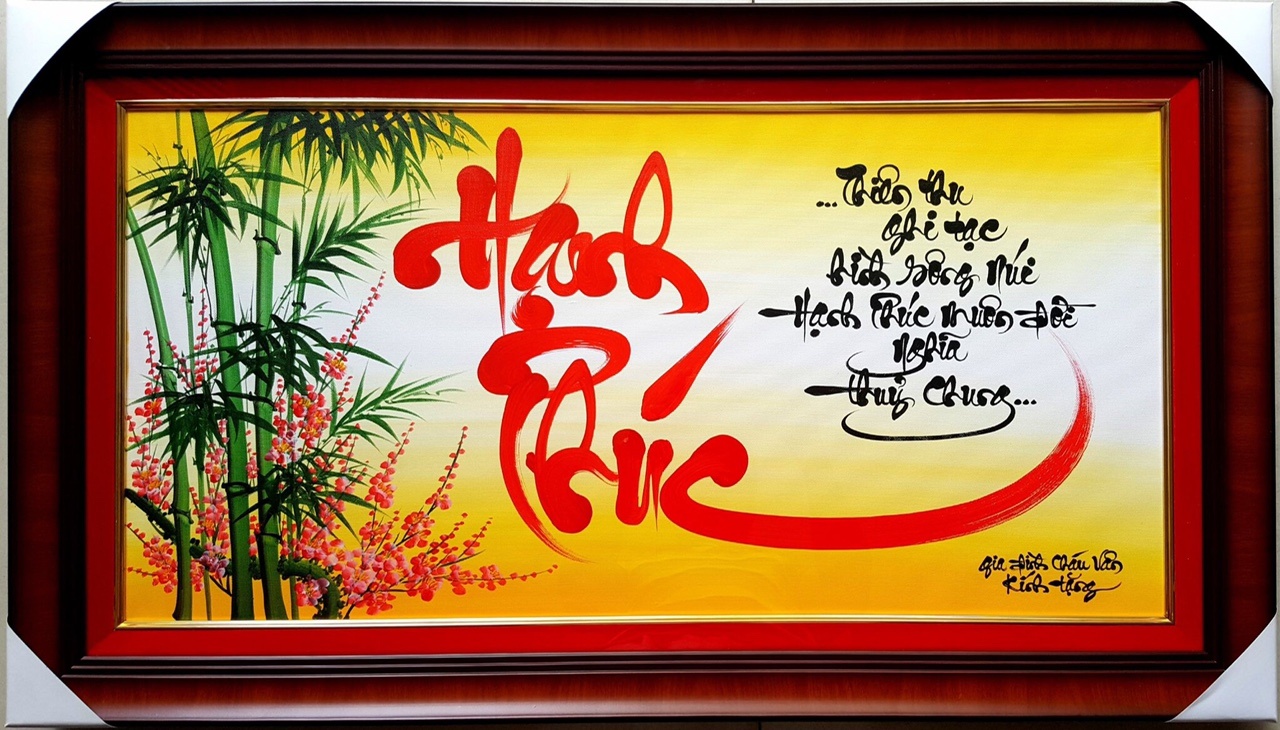 Hạnh
Phúc
...Thiên thu
ghi tạc
hình sông núi
Hạnh Phúc muôn đời
nghĩa
thuỷ Chung...
gia đình Cháu Vân
Kính tặng